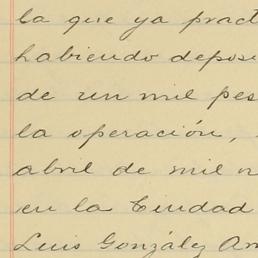 la que ya pract
habiendo deposi
de un mil pes
la operación,
abril de mil n
en la Ciudad
Luis González Am